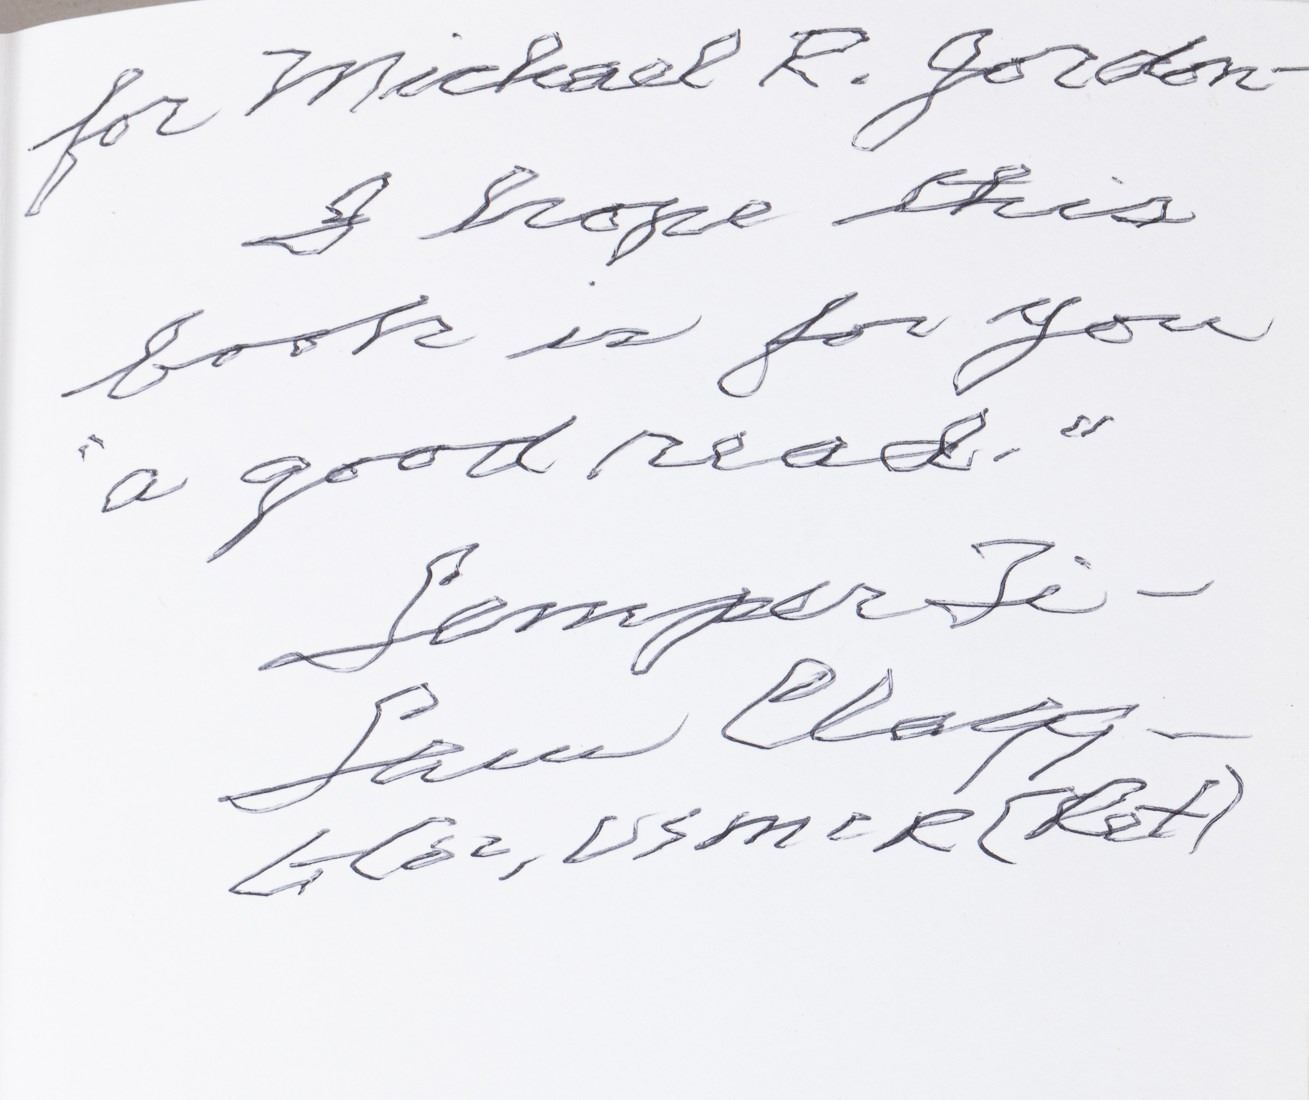 for Michael R. Gordon—
I hope this
book is for you
"a good read."
Semper Fi —
Sam Clagg —
Lt Col, USMCR (Ret)